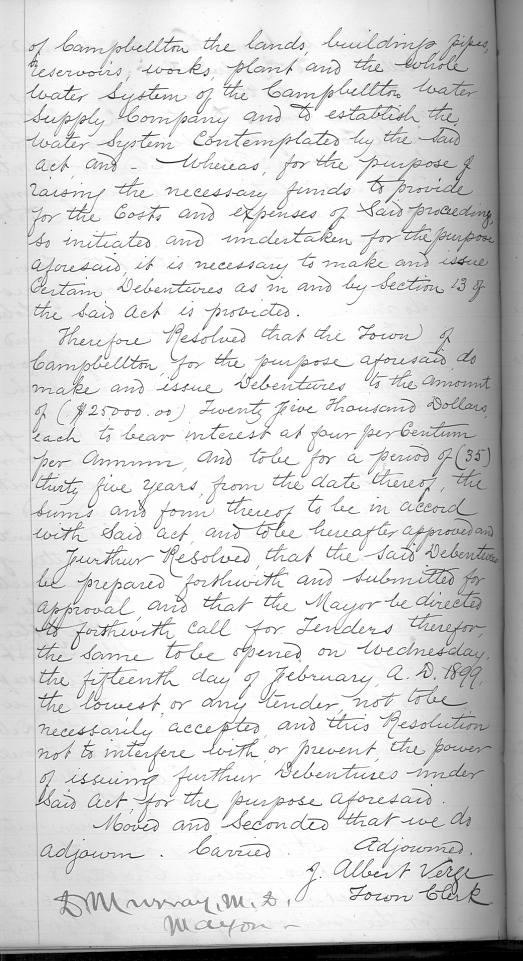 of Campbellton the lands, buildings, pipes,
reservoirs, works plant and the whole
Water System of the Campbellton Water
Supply Company and to establish the
Water System Contemplated by the said
act, and - Whereas, for the purpose of
raising the necessary funds to provide
for the Costs and expenses of Said proceeding,
so initiated and undertaken for the purpose
aforesaid, it is necessary to make and issue
Certain Debentures as in and by Section 13 of
the said Act is provided.
Therefore Resolved that the Town of
Campbellton, for the purpose aforesaid, do
make and issue Debentures to the amount
of ($25000.00) Twenty Five Thousand Dollars,
each to bear interest at four per Centum
per Annum, and to be for a period of (35)
thirty five years, from the date thereof, the
sums and form thereof to be in accord
with Said act, and to be hereafter approved and
Furthur Resolved, that the said Debentures
be prepared forthwith and submitted for
approval, and that the Mayor be directed
to forthwith call for Tenders therefor,
the same to be opened on Wednesday,
the fifteenth day of February, A. D. 1899,
the lowest or any tender, not to be
necessarily accepted, and this Resolution
not to interfere with, or prevent, the power
of issuing furthur Debentures under
Said Act, for the purpose aforesaid.
Moved and Seconded that we do
adjourn. Carried. Adjourned.
J. Albert Verge
Town Clerk
D Murray, M. D.
Mayor -